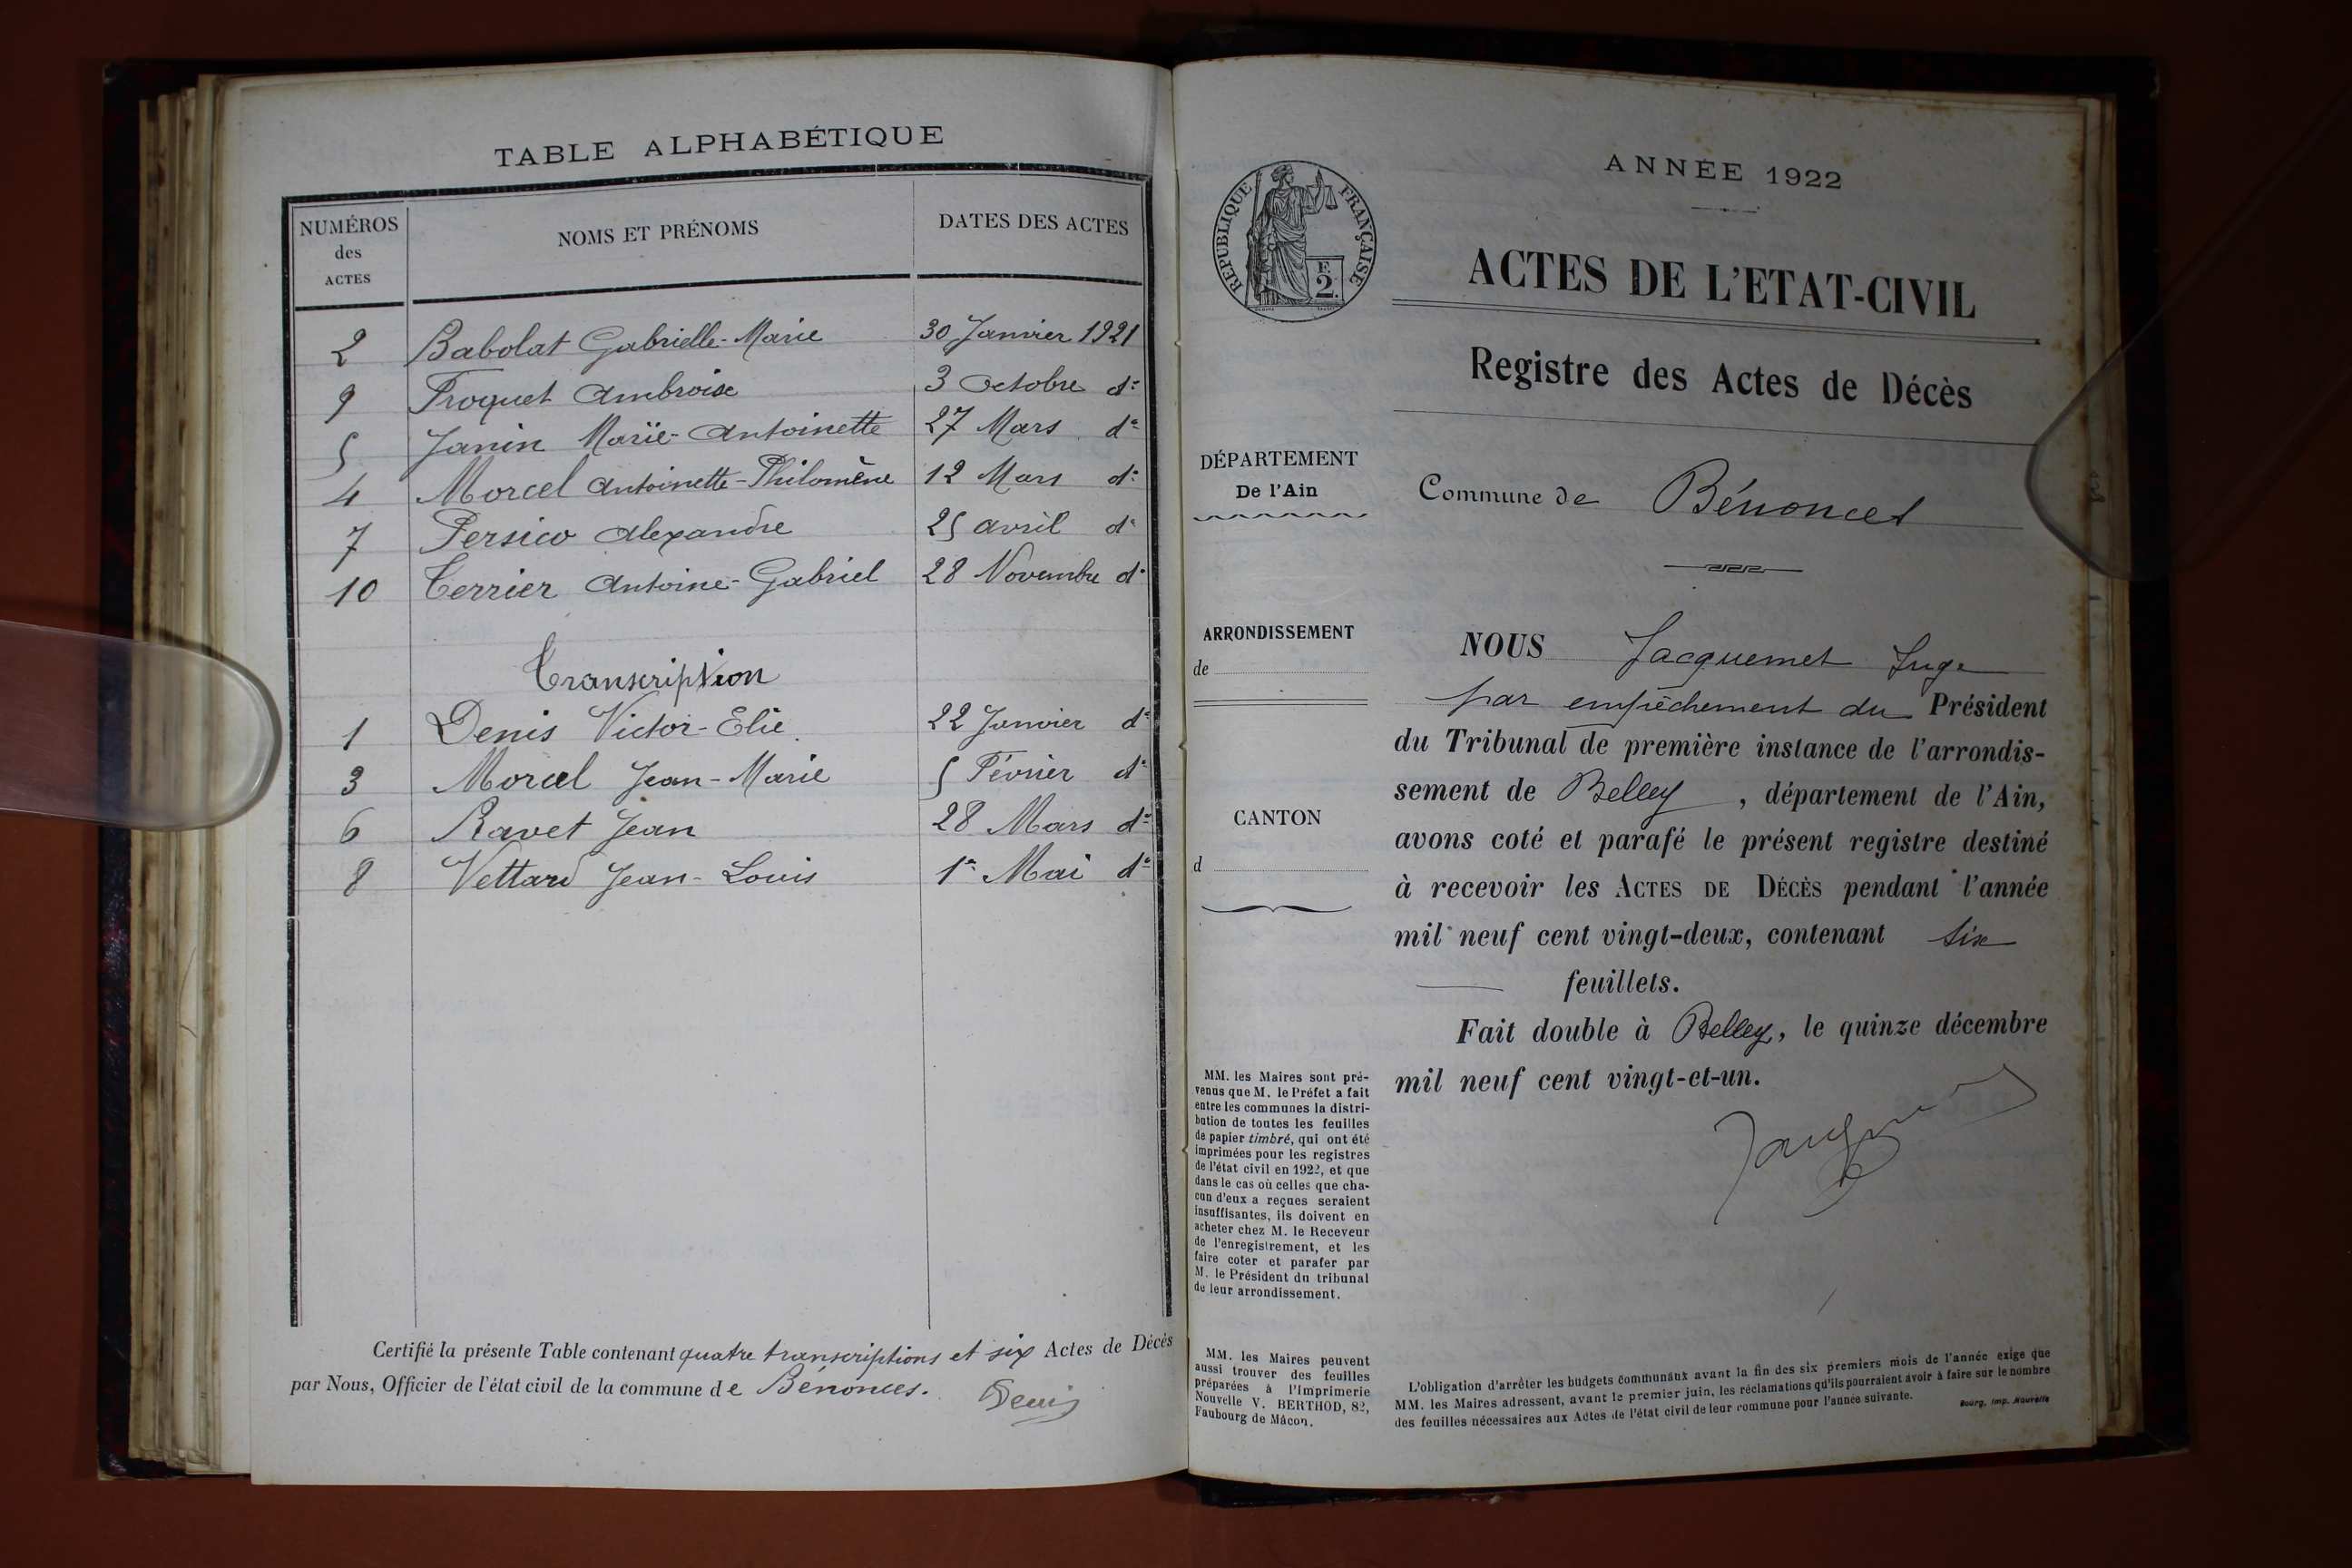 TABLE ALPHABÉTIQUE
NUMÉROS des ACTES NOMS ET PRÉNOMS DATES DES ACTES
2 Babolat Gabrielle-Marie 30 Janvier 1921
9 Froquet Ambroise 3 Octobre do
5 Janin Marie-Antoinette 27 Mars do
4 Morcel Antoinette-Philomène 12 Mars do
7 Persico Alexandre 25 avril do
10 Terrier Antoine-Gabriel 28 Novembre do
Transcription
1 Denis Victor-Elie. 22 Janvier do
3 Morcel Jean-Marie 5 Février do
6 Ravet Jean 28 Mars do
8 Vettard Jean-Louis 1er Mai do
Certifié la présente Table contenant quatre transcriptions et six Actes de Décès
par Nous, Officier de l'état civil de la commune de Bénonces.
Denis
ANNÉE 1922
REPUBLIQUE FRANÇAISE
F.
2.
ACTES DE L'ETAT-CIVIL
Registre des Actes de Décès
DÉPARTEMENT
De l'Ain
Commune de Bénonces
ARRONDISSEMENT
de
CANTON
d
NOUS Jacquemet Juge
par empêchement du Président
du Tribunal de première instance de l'arrondis-
sement de Belley, département de l'Ain,
avons coté et parafé le présent registre destiné
à recevoir les ACTES DE DÉCÈS pendant l'année
mil neuf cent vingt-deux, contenant six
feuillets.
Fait double à Belley, le quinze décembre
mil neuf cent vingt-et-un.
MM. les Maires sont pré-
venus que M. le Préfet a fait
entre les communes la distri-
bution de toutes les feuilles
de papier timbré, qui ont été
imprimées pour les registres
de l'état civil en 1922, et que
dans le cas où celles que cha-
cun d'eux a reçues seraient
insuffisantes, ils doivent en
acheter chez M. le Receveur
de l'enregistrement, et les
faire coter et parafer par
M. le Président du tribunal
de leur arrondissement.
MM. les Maires peuvent
aussi trouver des feuilles
préparées à l'Imprimerie
Nouvelle V. BERTHOD, 82,
Faubourg de Mâcon.
L'obligation d'arrêter les budgets communaux avant la fin des six premiers mois de l'année exige que
MM. les Maires adressent, avant le premier juin, les réclamations qu'ils pourraient avoir à faire sur le nombre
des feuilles nécessaires aux Actes de l'état civil de leur commune pour l'année suivante.
Bourg, Imp. Nouvelle